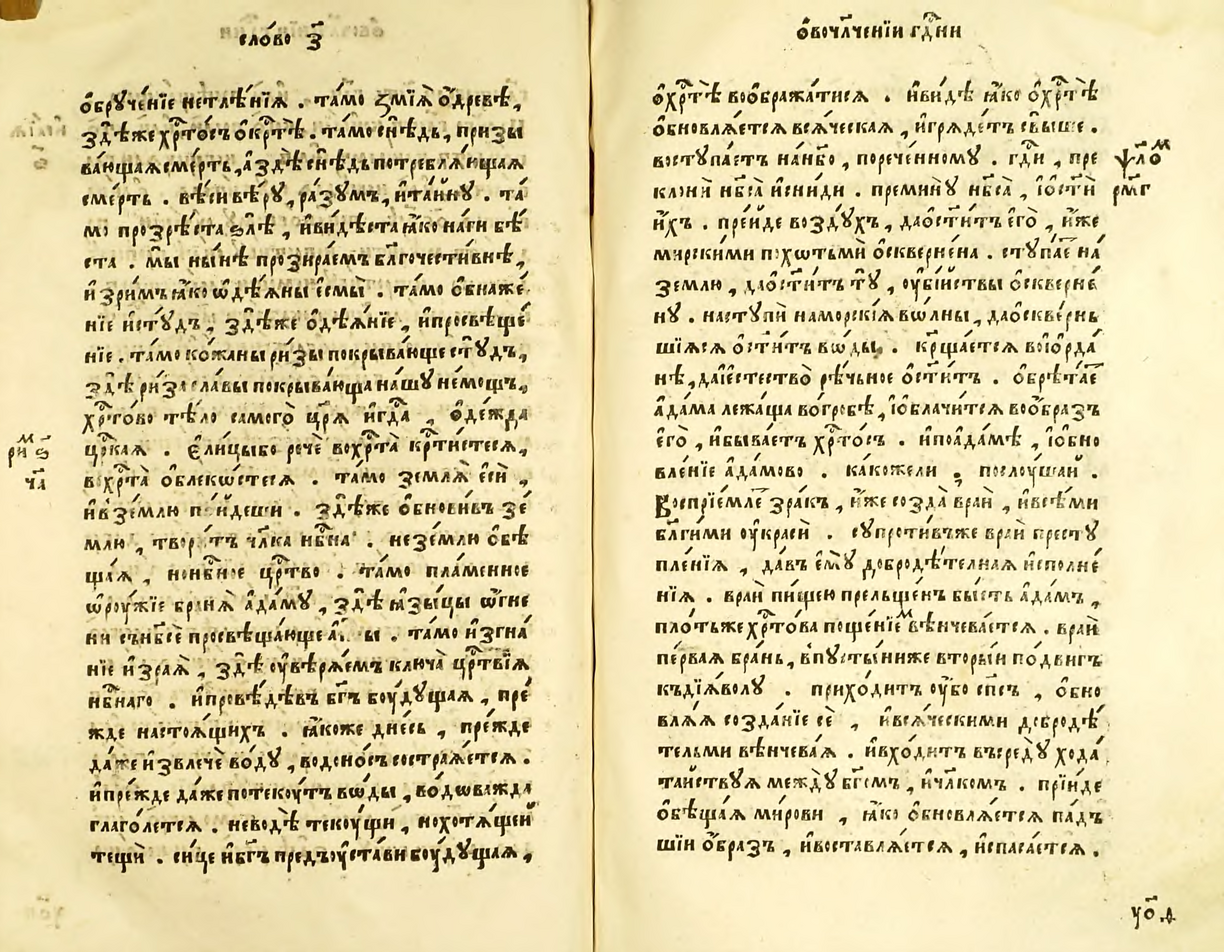 сло́во з҃
ѡ҆бꙋче́нїе нетлѣ́нїѧ . та́мо ꙁмїѧ̀ о҆́древѣ ,
здѣ́же хрⷭ҇то́съ о҆кртⷭ҇ѣ̀ . та́мо снѣ́дь , призы
ва́ющаѧ сме́рть , а҆здѣ̀ снѣ́дь потреблѧ́ющаѧ
сме́рть . вѣ́си вѣ́рꙋ , ра́зꙋмъ , и҆та́йнꙋ . та́
мо прозрѣ́ста ѕлѣ̀ , и҆ви́дѣста ꙗ҆́ко на́ги бѣ́
ста . мы̀ ны́нѣ прозира́емъ бл҃гочести́внѣ ,
и҆ зри́мъ ꙗ҆́ко ѡ҆дѣ́ѧны е҆смы̀ . та́мо ѻ҆бнаже́
нїе и҆стꙋ́дъ , здѣ́же ѻ҆дѣѧ́нїе , и҆просвѣще́
нїе . та́мо ко́жаны ри́зы покрыва́юще стꙋ́дъ ,
здѣ̀ ри́за сла́вы покрыва́юща на́шꙋ не́мощь ,
хрⷭ҇то́во тѣ́ло самого̀ цр҃ѧ̀ и҆гдⷭ҇а , ѻ҆де́жда
црⷭ҇каѧ . Є҆ли́цыбо речѐ вохрⷭ҇та̀ крⷭ҇ти́стесѧ ,
вхрⷭ҇та̀ ѻ҆блеко́стесѧ . та́мо землѧ̀ є҆сѝ ,
и҆вꙁе́млю по́йдеши . здѣ́же ѻ҆бнови́въ зе́
млю , твори́тъ чл҃ка нбⷭ҇на . не зе́млю ѻ҆бѣ
ща́ѧ , нонбⷭ҇ное црⷭ҇тво . та́мо пла́менное
ѡ҆роу́жїе бранѧ̀ а҆да́мꙋ , здѣ̀ ꙗ҆зы́цы ѻ҆́гне
ни сънб҃сѐ просвѣща́юще . та́мо и҆згна́
нїе и҆зра́ѧ , здѣ̀ оу҆вѣрѧ́емъ ключа̀ црⷭ҇твїѧ
нбⷭ҇наго . и҆провѣ́дѣвъ бг҃ъ боу́дꙋщаѧ , пре́
жде настоѧ́щихъ . ꙗ҆́коже дне́сь , пре́жде
да́же и҆звлечѐ во́дꙋ , водоно́съ состра́ѧетсѧ .
и҆пре́жде да́же потекоу́тъ во́ды , во́дѡважда
глаго́летсѧ . не водѣ̀ текоу́щи , но хотѧ́щей
тещѝ . си́це и҆бг҃ъ предъоу҆ста́ви боу́дꙋщаѧ ,
ри҄м ѕ҃
ча҃
ѻ҆вочл҃че́нїи гдⷭ҇ни
ѻ҆хрⷭ҇тѣ̀ воѻбража́тисѧ . и҆ви́дѣ ꙗ҆́ко ѻ҆хрⷭ҇тѣ̀
ѻ҆бновлѧ́етсѧ всѧ́ческаѧ , и҆грѧде́тъ свы́ше .
востꙋпа́етъ на́нб҃о , порече́нномꙋ . гдⷭ҇и , пре
клонѝ нб҃са̀ и҆сни́ди . преминꙋ̀ нб҃са̀ , і҆ѡст҃и́
и҆́хъ . пре́йде воздꙋ́хъ , да ѻ҆ст҃и́тъ є҆го̀ , и҆́же
мирски́ми по́хотьмѝ ѻ҆скверне́на . стꙋпа́е на́
зе́млю , да ѻ҆ст҃и́тъ тꙋ̀ , оу҆бі́йствы ѻ҆скверне́
нꙋ . настꙋпѝ наморскі́ѧ во́лны , да ѻ҆скве́рнь
шїѧсѧ ѻ҆ст҃и́тъ во́ды . крⷭ҇ща́етсѧ воі҆ѻрда́
нѣ , да і҆є҆стество̀ рѣ́чьное ѻ҆ст҃и́тъ . ѻ҆брѣта́е
а҆да́ма лежа́ща вогро́бѣ , і҆ѻблачи́тсѧ воѻ́бразъ
є҆го̀ , и҆быва́етъ хрⷭ҇то́съ . и҆поа҆да́мѣ , і҆ѻбно
вле́нїе а҆да́мово . ка́кожели , послоу́шай .
Воспрїе́мле зра́къ , и҆́же созда̀ вра́й , и҆всѣ́ми
бл҃ги́ми оу҆красѝ . сꙋпроти́въже вра́й престꙋ
пле́нїѧ , да́въ є҆мꙋ̀ добродѣ́телнаѧ и҆сполне́
нїѧ . вра́й пи́щею прельще́нъ бы́сть а҆да́мъ ,
пло́тьже хрⷭ҇то́ва поще́нїемъ вѣнчева́етсѧ . вра́й
пе́рваѧ бра́нь , впꙋсты́ниже вторы́й по́двигъ
къдїѧ́волꙋ . прихо́дитъ оу҆́бо сп҃съ , ѻ҆бно
влѧ́ѧ созда́нїе сѐ , и҆всѧ́ческими добродѣ́
тельми вѣнчева́ѧ . и҆вхо́дитъ въсредꙋ̀ хода́
тайствꙋѧ междꙋ̀ бг҃омъ , и҆чл҃комъ . прїи́де
ѻ҆бѣща́ѧ ми́рови , ꙗ҆́ко ѻ҆бновлѧ́етсѧ па́дъ
шїи ѻ҆́бразъ , и҆воставлѧ́етсѧ , и҆спаса́етсѧ .
ѱало҄м
рм҃г